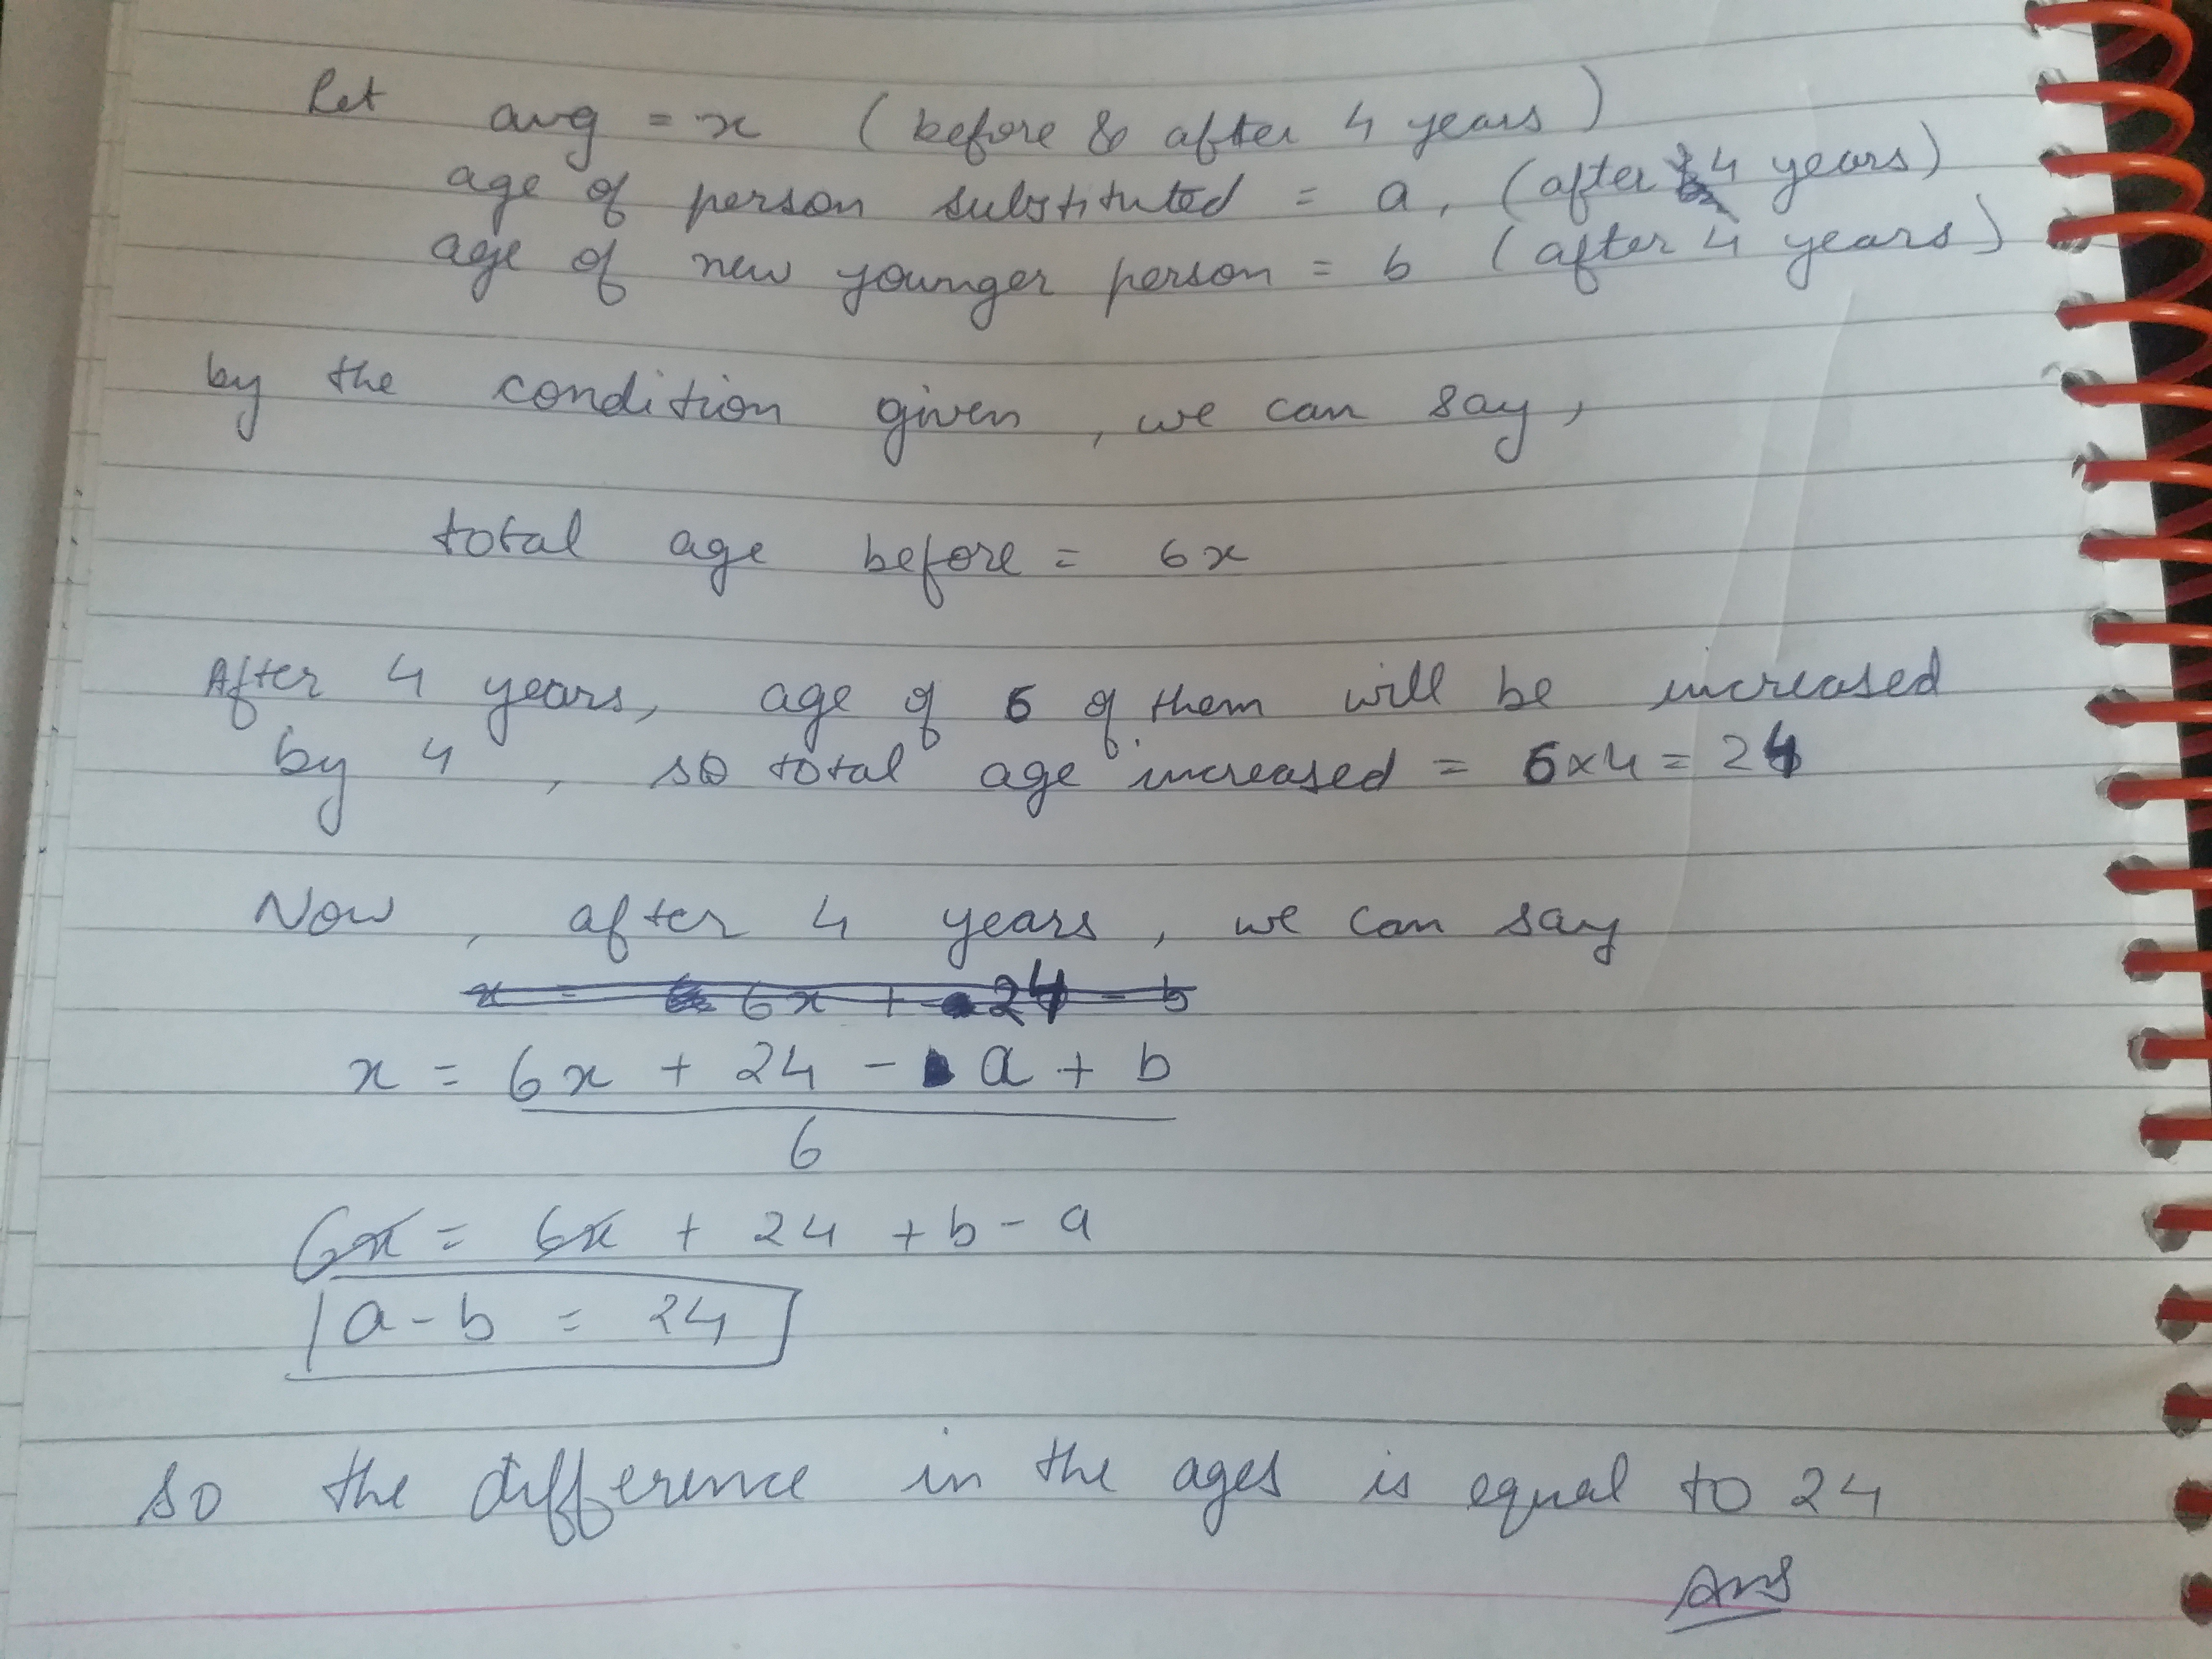 Let avg = x (before & after 4 years)
age of person substituted = a, (after 4 years)
age of new younger person = b (after 4 years)
by the condition given, we can say,
total age before = 6x
After 4 years, age of 6 of them will be increased
by 4, so total age increased = 6x4 = 24
Now, after 4 years, we can say
x = 6x + 24 - b
x = 6x + 24 - a + b
6
6x = 6x + 24 + b - a
a - b = 24
so the difference in the ages is equal to 24
Ans